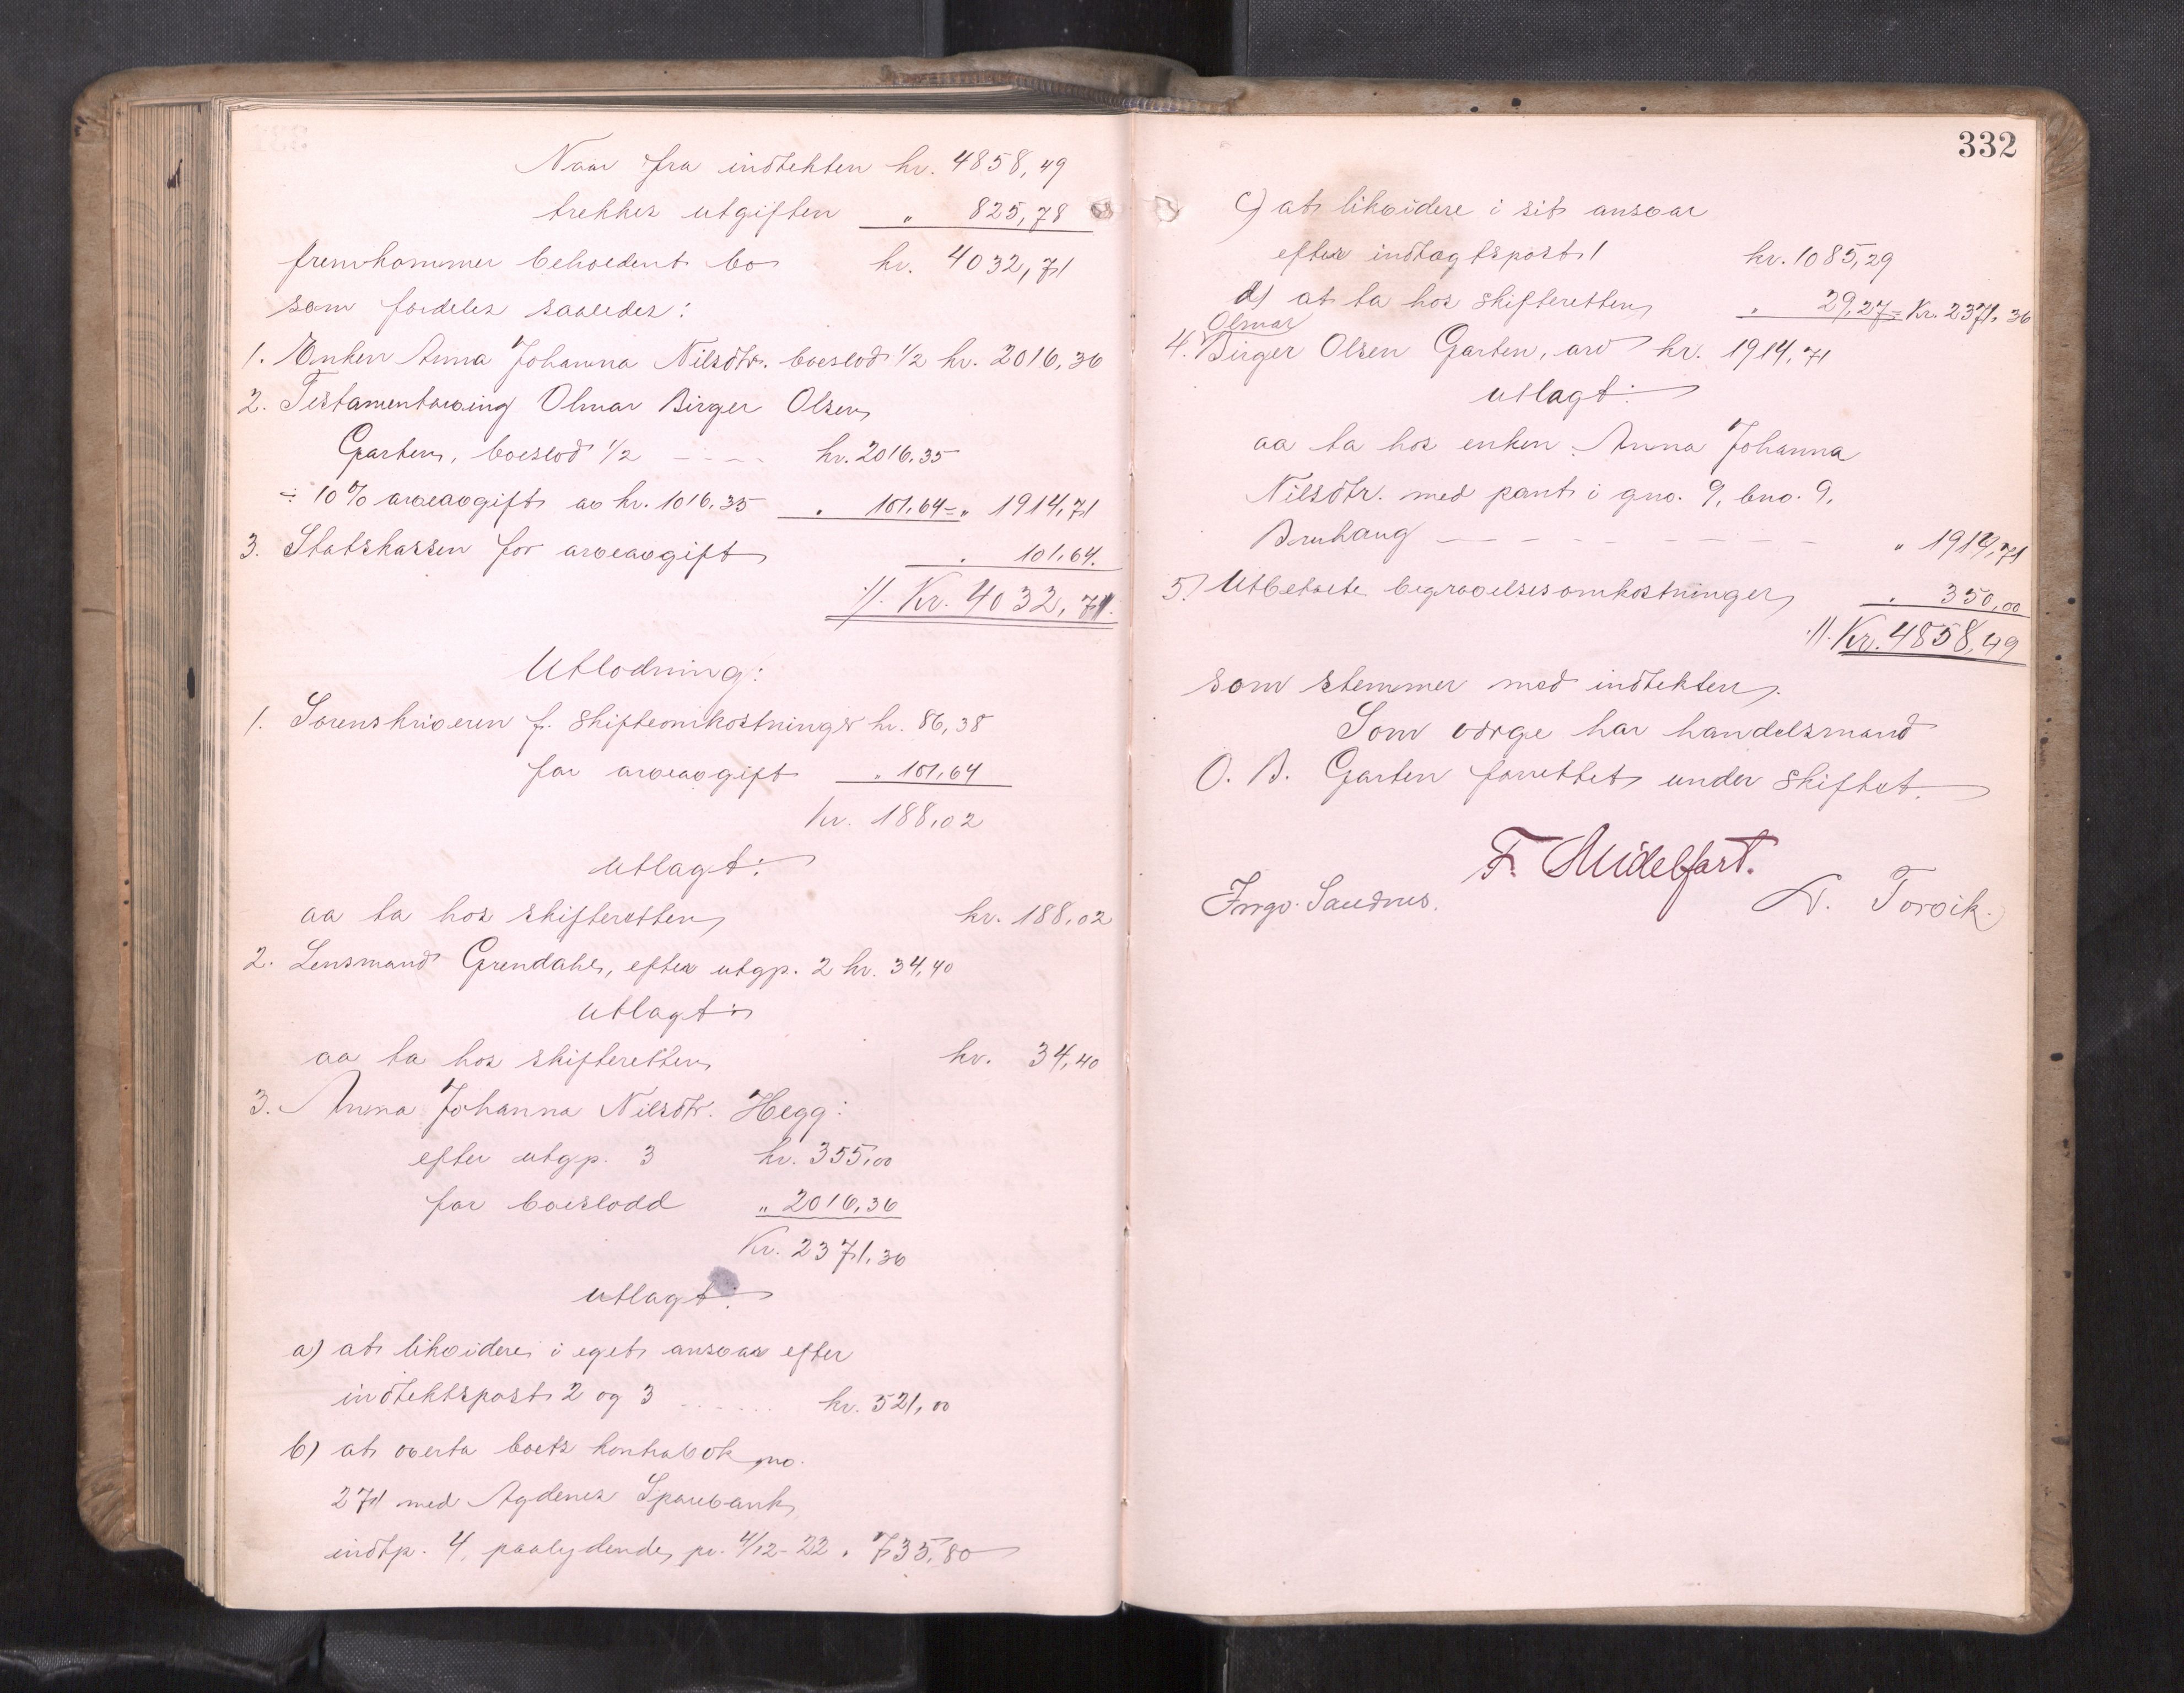 Naar fra indtekten kr. 4858,49
trekkes utgiften " 825,78
fremkommer beholdent bo kr. 4032,71
som fordeles saaledes:
1. Enken Anna Johanna Nilsdtr. boeslod 1/2 kr. 2016,36
2. Testamentarving Olmar Birger Olsen
Garten, boeslod 1/2 - - - - kr. 2016.35
÷ 10 % arveavgift av kr. 1016.35 " 101,64 = " 1914,71
3. Statskassen for arveavgift " 101,64.
://: Kr. 4032,71.
Utlodning:
1. Sorenskriveren f. skifteomkostninger kr. 86,38
for arveavgift " 101,64
kr. 188,02
utlagt:
aa ta hos skifteretten kr. 188,02
2. Lensmand Grendahl, efter utgp. 2 kr. 34,40
utlagt:
aa ta hos skifteretten kr. 34,40
3. Anna Johanna Nilsdtr. Hegg:
efter utgp. 3 kr. 355,00
for boeslodd " 2016,36
Kr. 2371,36
utlagt:
a) at likvidere i eget ansvar efter
indtektspost 2 og 3 - - - - - kr. 521,00
b) at overta boets kontrabok no.
271 med Agdenes Sparebank,
indtp. 4, paalydende pr. 4/12-22 " 735,80
332
c) at likvidere i sit ansvar
efter indtægtspost 1 kr. 1085,29
d) at ta hos skifteretten " 29,27 = Kr. 2371,36
Olmar
4. Birger Olsen Garten, arv kr. 1914,71
utlagt:
aa ta hos enken Anna Johanna
Nilsdtr. med pant i gno. 9, bno. 9,
Bruhaug - - - - - - - - - " 1914,71
5) Utbetalte begravelsesomkostninger " 350,00
://: Kr. 4858,49
som stemmer med indtekten.
Som værge har handelsmand
O. B. Garten forrettet under skiftet.
F. Midelfart.
Ingv. Sandnes. Torvik.